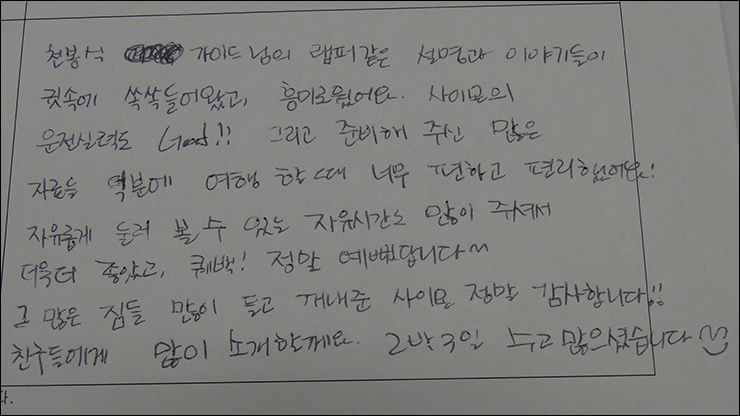 천봉석 가이드님의 랩퍼같은 설명과 이야기들이
귓속에 쏙쏙들어왔고, 흥미로웠어요. 사이먼의
운전실력도 Good!! 그리고 준비해 주신 많은
자료들 덕분에 여행 할때 너무 편하고 편리했어요!
자유롭게 둘러 볼 수 있는 자유시간도 많이 주셔서
더욱더 좋았고, 퀘백! 정말 예뻤답니다~
그 많은 짐들 많이 들고 꺼내준 사이먼 정말 감사합니다!!
친구들에게 많이 소개할께요. 2박3일 수고많으셨습니다
다.